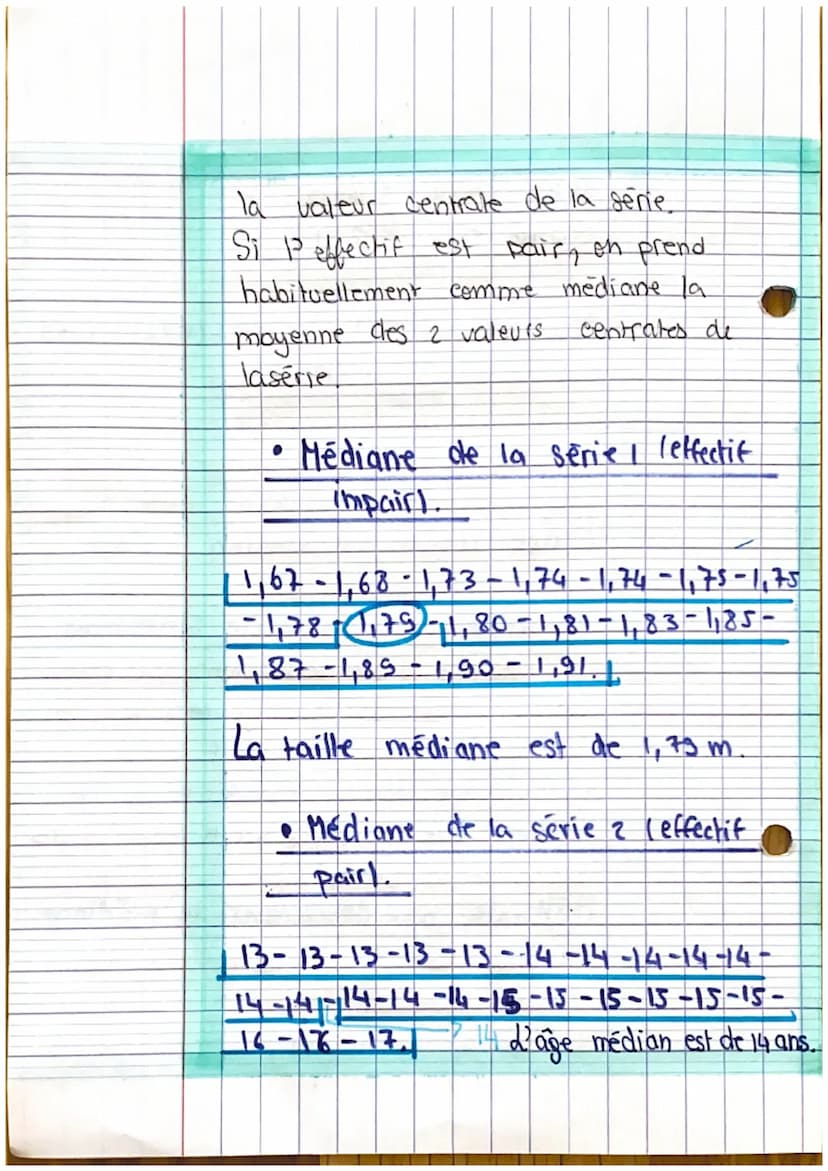 la valeur centrale de la série.
Si l'effectif est pair, on prend
habituellement comme médiane la
moyenne des 2 valeurs centrales de
la série.
• Médiane de la série 1 (effectif
impair).
1,67 - 1,68 - 1,73 - 1,74 - 1,74 - 1,75 - 1,75
- 1,78 - 1,79 - 1,80 - 1,81 - 1,83 - 1,85 -
1,87 - 1,89 - 1,90 - 1,91.
La taille médiane est de 1,79 m.
• Médiane de la série 2 (effectif
pair).
13 - 13 - 13 - 13 - 13 - 14 - 14 - 14 - 14 - 14 -
14 - 14 - 14 - 14 - 14 - 15 - 15 - 15 - 15 - 15 - 15 -
16 - 16 - 17. 14 L'âge médian est de 14 ans.